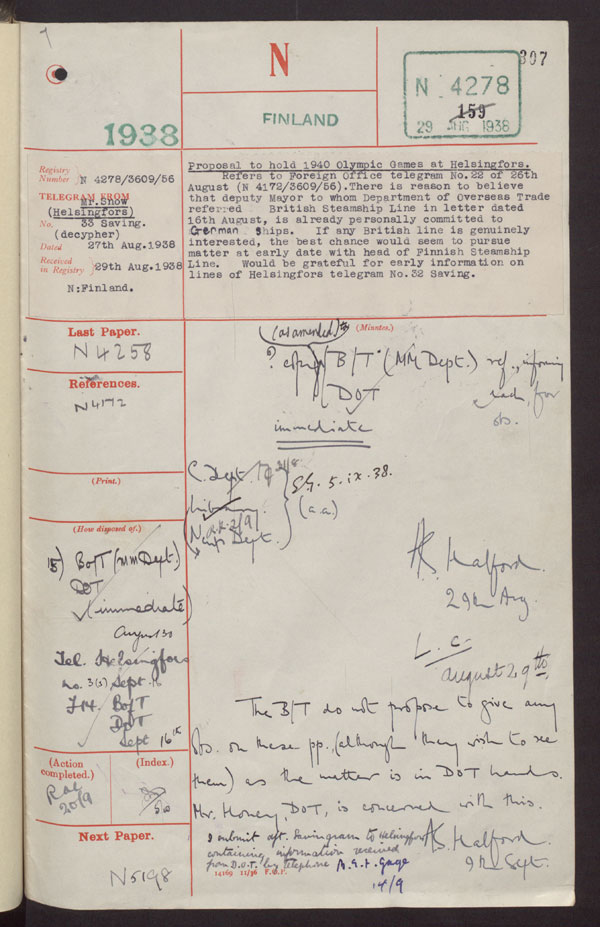 N
307
FINLAND
N 4278
159
29 AUG 1938
1938
Registry
Number
N 4278/3609/56
TELEGRAM FROM
Mr. Snow
(Helsingfors)
No. 33 Saving.
(decypher)
Dated 27th Aug. 1938
Received
in Registry
29th Aug. 1938
N: Finland.
Proposal to hold 1940 Olympic Games at Helsingfors.
Refers to Foreign Office telegram No.22 of 26th
August (N 4172/3609/56). There is reason to believe
that deputy Mayor to whom Department of Overseas Trade
referred British Steamship Line in letter dated
16th August, is already personally committed to
German ships. If any British line is genuinely
interested, the best chance would seem to pursue
matter at early date with head of Finnish Steamship
Line. Would be grateful for early information on
lines of Helsingfors telegram No.32 Saving.
Last Paper.
N4258
References.
N4172
(Print.)
(How disposed of.)
B/T (MM Dept.)
DOT
(immediate)
August 30
Tel. Helsingfors
No. 3(s) Sept. 16
B/T
DOT
Sept 16th
(Action
completed.)
(Index.)
20/9
Next Paper.
N5198
(Minutes.)
(as amended)
? B/T (MM Dept.) ref., informing
DOT each, for
obs.
immediate
C. Dept.
Library.
News Dept.
5.ix.38.
(a.a.)
A.S. Halford.
29th Aug.
L. C.
August 29th.
The B/T do not propose to give any
obs. on these pp. (although they wish to see
them) as the matter is in DOT hands.
Mr. Honey, DOT, is concerned with this.
A.S. Halford.
9th Sept.
I submit dft. Savingram to Helsingfors
containing information received
from D.O.T. by telephone
Gage
14/9
14169 11/36 F.O.P.